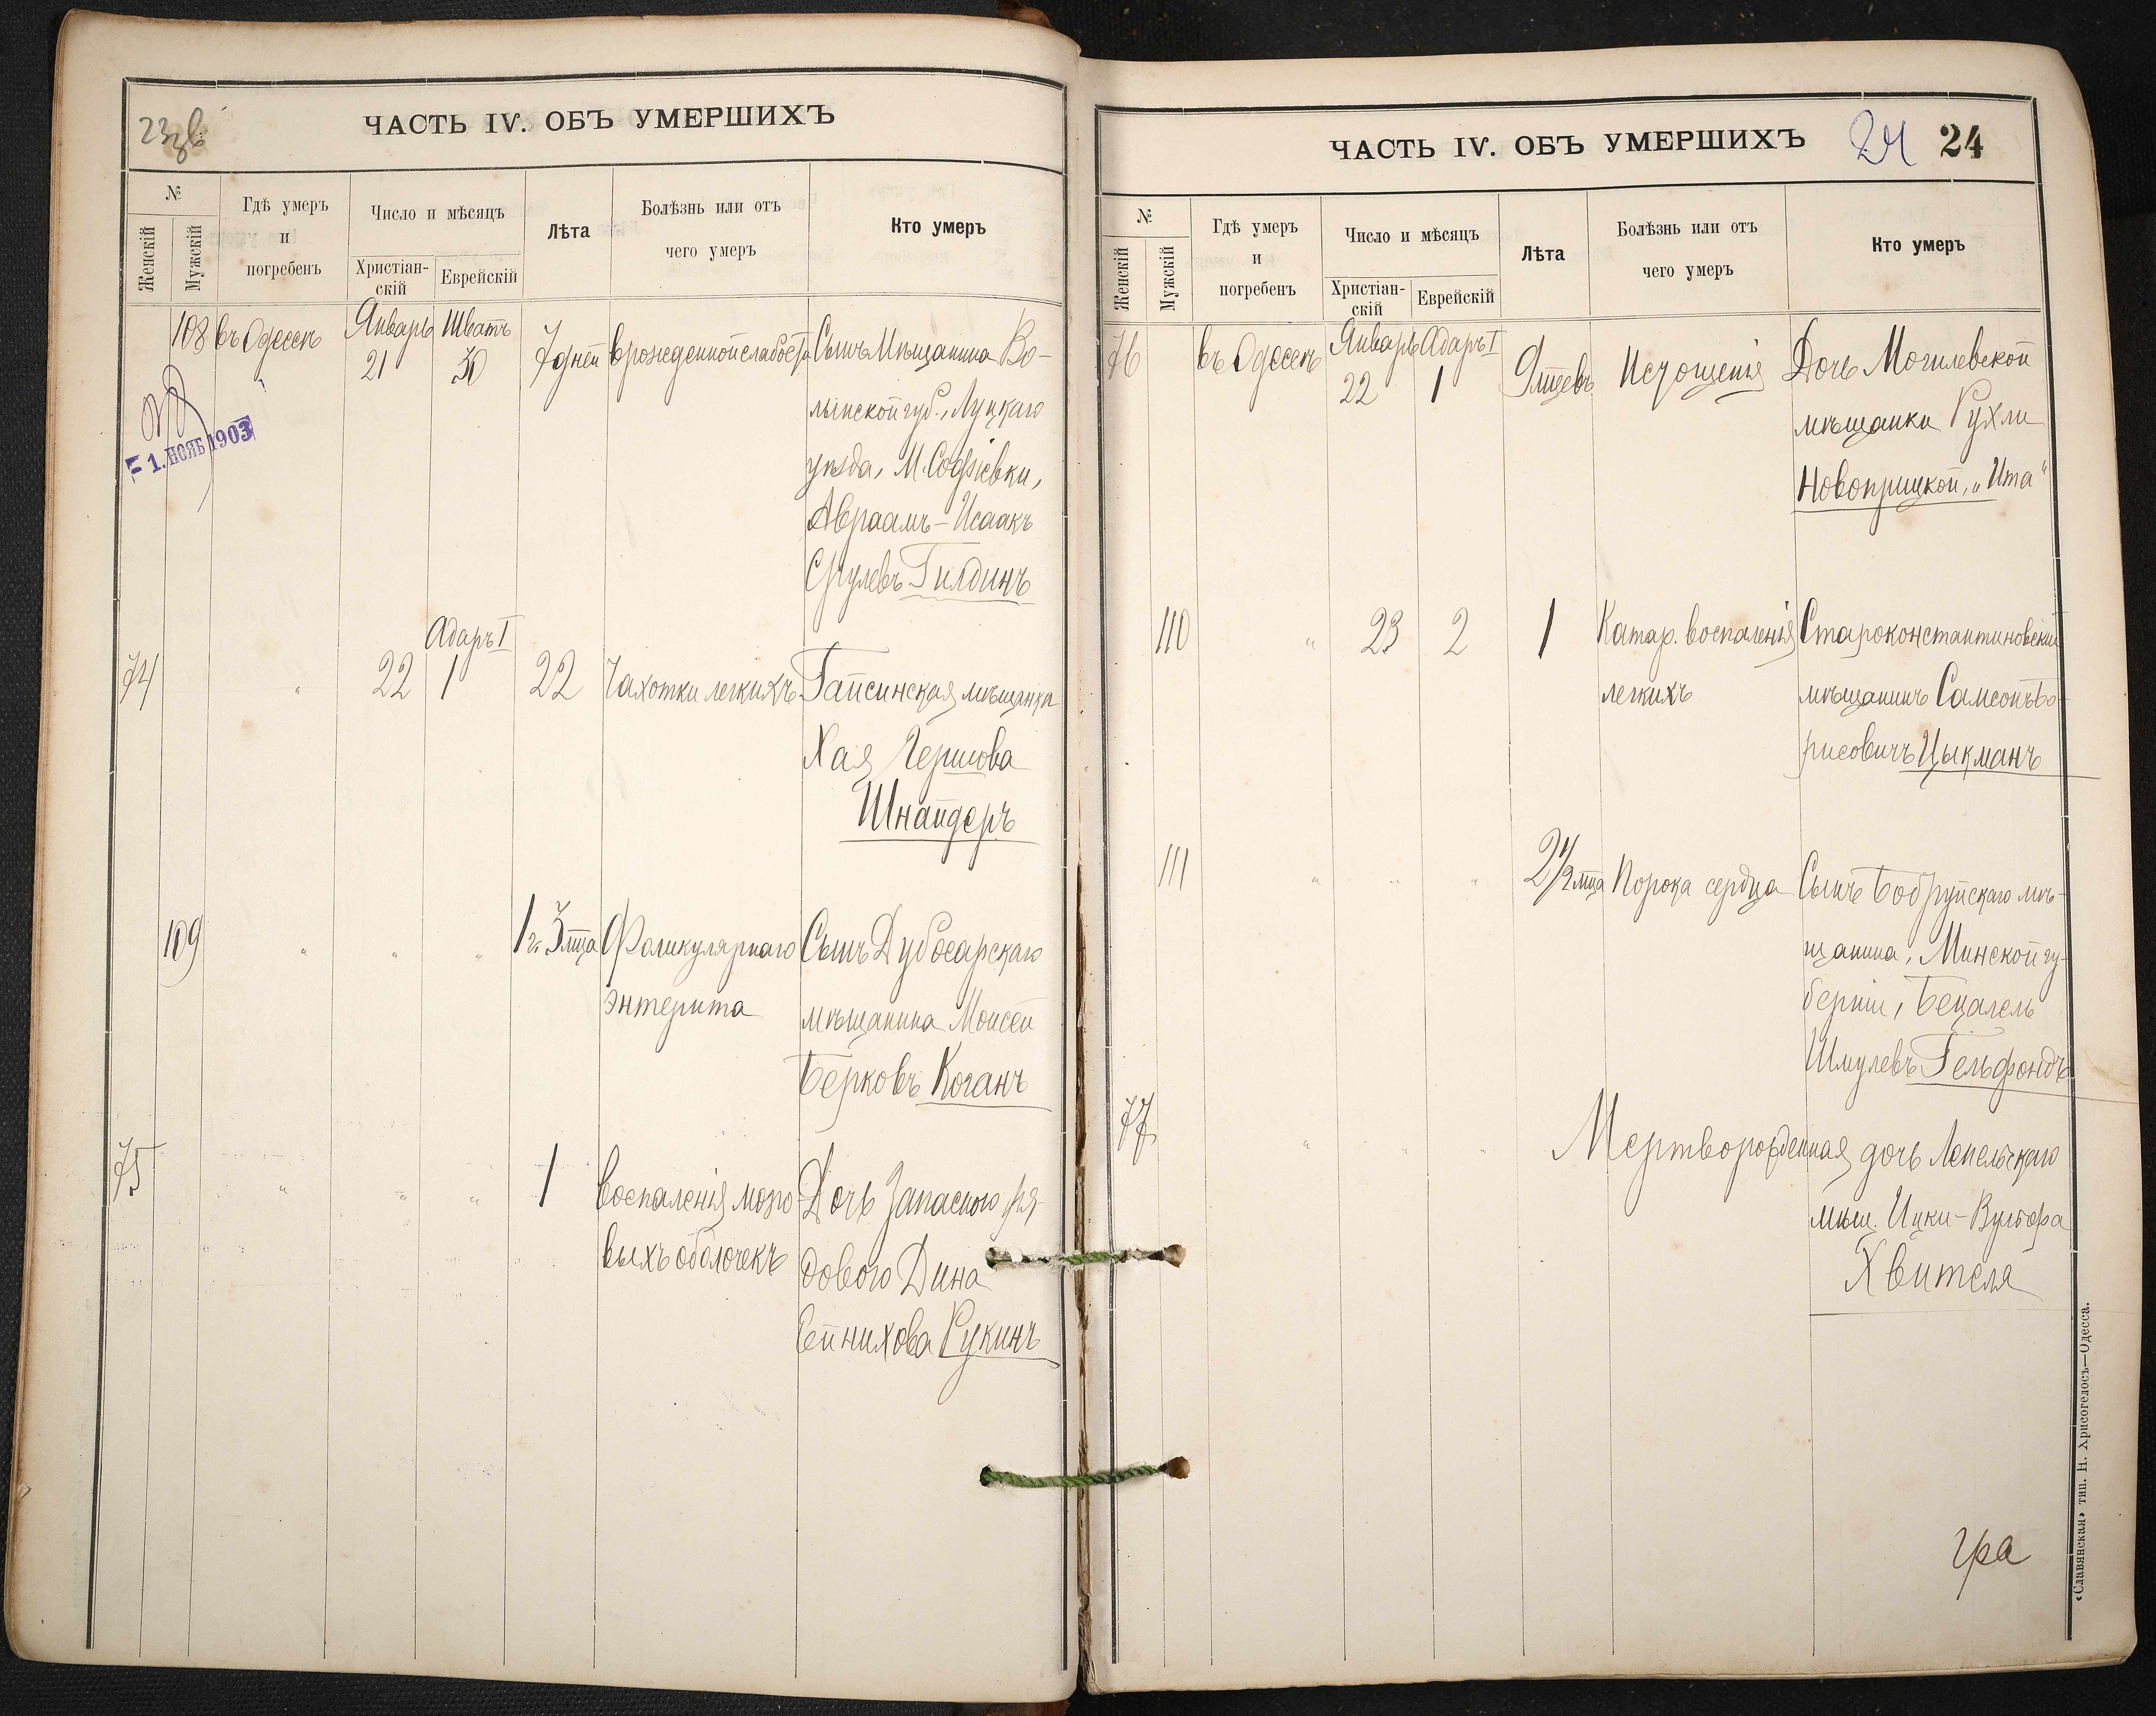 23об
ЧАСТЬ IV. ОБЪ УМЕРШИХЪ
№
Женскій
Мужскій
Гдѣ умеръ
и
погребенъ
Число и мѣсяцъ
Христіан-
скій
Еврейскій
Лѣта
Болѣзнь или отъ
чего умеръ
Кто умеръ
108 въ Одессѣ Январь 21 Шватъ 30 7 дней врожденной слабости Сынъ Мѣщанина Во-
лынской губ., Луцкаго
уѣзда, М. Софіевки,
Авраамъ-Исаакъ
Срулевъ Гилдинъ
1. НОЯБ 1903
74 " 22 Адаръ I 1 22 Чахотки легкихъ Гайсинская мѣщанка
Хая Гершова
Шнайдеръ
109 " " " 1 г. 3 мца Фоликулярнаго Сынъ Дубосарскаго
энтерита мѣщанина Моисей
Берковъ Коганъ
75 " " " 1 Воспаленія мозго- Дочь Запасного ря-
выхъ оболочекъ дового Дина
Ейнихова Рукинъ
ЧАСТЬ IV. ОБЪ УМЕРШИХЪ
24 24
№
Женскій
Мужскій
Гдѣ умеръ
и
погребенъ
Число и мѣсяцъ
Христіан-
скій
Еврейскій
Лѣта
Болѣзнь или отъ
чего умеръ
Кто умеръ
76 въ Одессѣ Январь 22 Адаръ I 1 9 мцевъ Истощенія Дочь Могилевской
мѣщанки Рухли
Новоприцкой, „Ита“
110 " 23 2 1 Катар. воспаленія Староконстантиновскій
легкихъ мѣщанинъ Самсонъ Бо-
рисовичъ Цыкманъ
111 " " " 2 1/2 мца Порока сердца Сынъ Бобруйскаго мѣ-
щанина, Минской гу-
берніи, Бецалель
Шмулевъ Гельфондъ
77 " " " Мертворожденная дочь Лепельскаго
мѣщ. Ицки-Вульфа
Хвителя
«Славянская» тип. Н. Хрисогелосъ—Одесса.